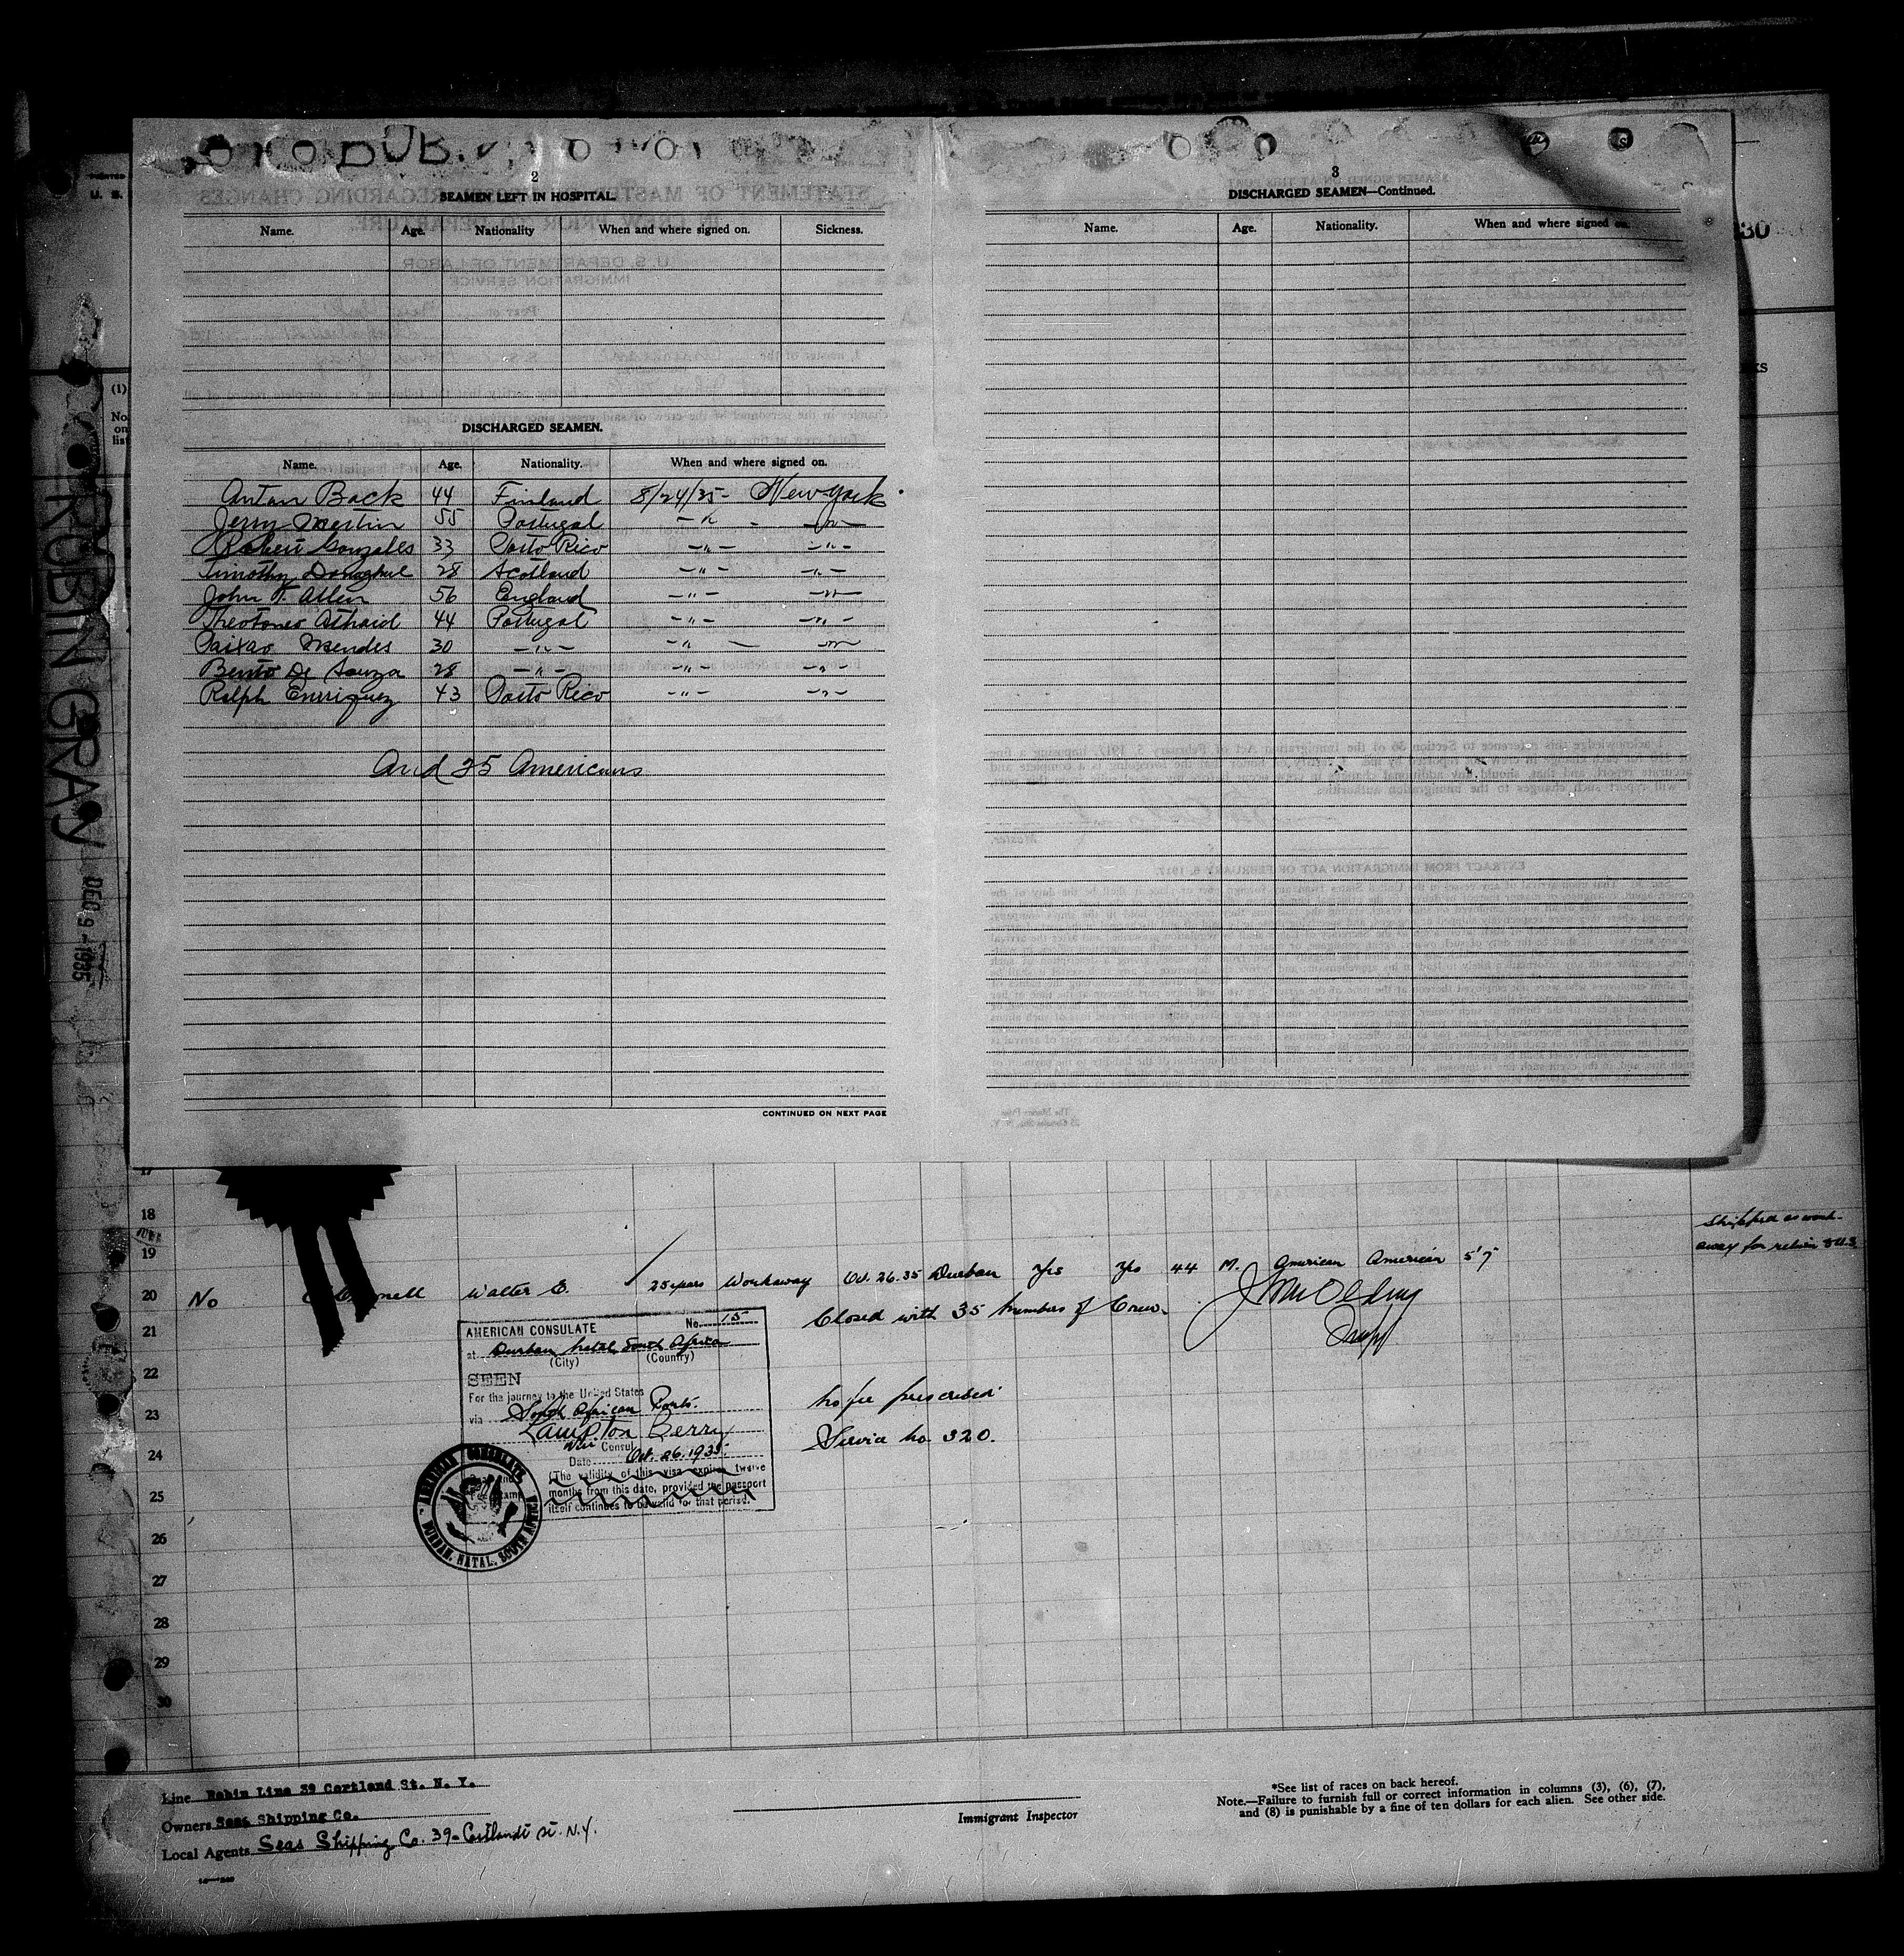 2
SEAMEN LEFT IN HOSPITAL.
Name. Age. Nationality When and where signed on. Sickness.
DISCHARGED SEAMEN.
Name. Age. Nationality. When and where signed on.
Antan Back 44 Finland 8/24/35- New York.
Jerry Mertin 55 Portugal -"- -"-
Robert Gonzales 33 Porto Rico -"- -"-
Timothy Donaghue 28 Scotland -"- -"-
John T. Allen 56 England -"- -"-
Theotoneo Athaid 44 Portugal -"- -"-
Paixao Mendes 30 -"- -"- -"-
Bento De Souza 28 -"- -"- -"-
Ralph Enrriquez 43 Porto Rico -"- -"-
And 25 Americans
CONTINUED ON NEXT PAGE
3
DISCHARGED SEAMEN—Continued.
Name. Age. Nationality. When and where signed on.
30
U. S.
(1)
No.
on
list
ROBIN GRAY
DEC 9 - 1935
17
18
19
Shipped as work-
away for return to U.S.
20 No Walter E. 25 years Workaway Oct. 26.35 Durban Yes Yes 44 M. American American 5'7"
21 Closed with 35 members of Crew.
22
23 No fee prescribed
24 Service No. 320.
25
26
27
28
29
30
AMERICAN CONSULATE No. 15
at Durban Natal, South Africa
(City) (Country)
SEEN
For the journey to the United States
via South African Ports.
Lampton Berry
Vice Consul
Date Oct. 26. 1935
(The validity of this visa expires twelve
months from this date, provided the passport
itself continues to be valid for that period.
AMERICAN CONSULATE
DURBAN, NATAL, SOUTH AFRICA
Line Robin Line 39 Cortland St. N. Y.
Owners Seas Shipping Co.
Local Agents Seas Shipping Co. 39-Cortlandt St. N.Y.
Immigrant Inspector
*See list of races on back hereof.
Note.—Failure to furnish full or correct information in columns (3), (6), (7),
and (8) is punishable by a fine of ten dollars for each alien. See other side.